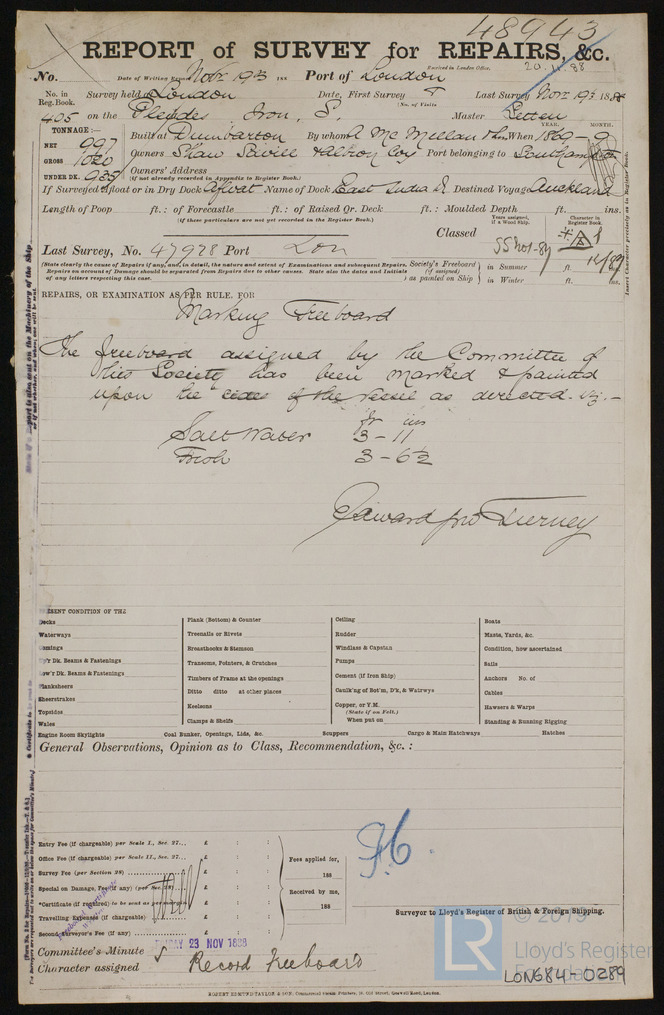 48943
REPORT of SURVEY for REPAIRS, &c.
Received in London Office, 20.11.88
No. Date of Writing Report Novr 19 188 Port of London
No. in Reg. Book. Survey held at London Date, First Survey Last Survey Novr 19 1888
(No. of Visits
405 on the Pleiades Iron, S. Master Setten
TONNAGE:—
NET 997
GROSS 1020
UNDER DK. 935
Built at Dumbarton By whom A McMillan & Sn When 1869-9
YEAR. MONTH.
Owners Shaw Savill & Albion Coy Port belonging to Southampton
Owners' Address
(If not already recorded in Appendix to Register Book.)
If Surveyed Afloat or in Dry Dock Afloat Name of Dock East India D. Destined Voyage Auckland
Length of Poop ft.: of Forecastle ft.: of Raised Qr. Deck ft.: Moulded Depth ft. ins.
(If these particulars are not yet recorded in the Register Book.)
Years assigned, if a Wood Ship.
Character in Register Book.
Insert Character precisely as in Register Book.
Last Survey, No. 47928 Port Lon
Classed
(State clearly the cause of Repairs if any, and in detail, the nature and extent of Examinations and subsequent Repairs.
Repairs on account of Damage should be separated from Repairs due to other causes. State also the dates and Initials of any letters respecting this case.
Society's Freeboard (if assigned) as painted on Ship
in Summer ft. ins.
in Winter ft. ins.
REPAIRS, OR EXAMINATION AS PER RULE, FOR
Marking Freeboard
The freeboard assigned by the Committee of
this Society has been marked & painted
upon the sides of the vessel as directed. viz:-
ft ins
Salt Water 3-11
Fresh 3-6½
Edward Jno Tierney
PRESENT CONDITION OF THE
Decks
Waterways
Comings
Up'r Dk. Beams & Fastenings
Low'r Dk. Beams & Fastenings
Planksheers
Sheerstrakes
Topsides
Wales
Engine Room Skylights
Plank (Bottom) & Counter
Treenails or Rivets
Breasthooks & Stemson
Transoms, Pointers, & Crutches
Timbers of Frame at the openings
Ditto ditto at other places
Keelsons
Clamps & Shelfs
Coal Bunker, Openings, Lids, &c.
Ceiling
Rudder
Windlass & Capstan
Pumps
Cement (if Iron Ship)
Caulk'ng of Bot'm, D'k, & Waterw'ys
Copper, or Y.M.
(State if on Felt.)
When put on
Scuppers
Cargo & Main Hatchways
Boats
Masts, Yards, &c.
Condition, how ascertained
Sails
Anchors No. of
Cables
Hawsers & Warps
Standing & Running Rigging
Hatches
General Observations, Opinion as to Class, Recommendation, &c. :
Entry Fee (if chargeable) per Scale I., Sec. 27... £ : :
Office Fee (if chargeable) per Scale II., Sec. 27... £ : :
Survey Fee (per Section 28) £ : :
Special or Damage, Fee (if any) (per Sec. 28) £ : :
*Certificate (if required) to be sent as per margin £ : :
Travelling Expenses (if chargeable) £ : :
Second Surveyor's Fee (if any) £ : :
Fees applied for,
188
Received by me,
188
Surveyor to Lloyd's Register of British & Foreign Shipping.
Committee's Minute FRIDAY 23 NOV 1888
Character assigned Record Freeboard
ROBERT EDMUND TAYLOR & SON, Commercial Steam Printers, 19, Old Street, Goswell Road, London.
© 2019
LR
Lloyd's Register
Foundation
LON684-0289